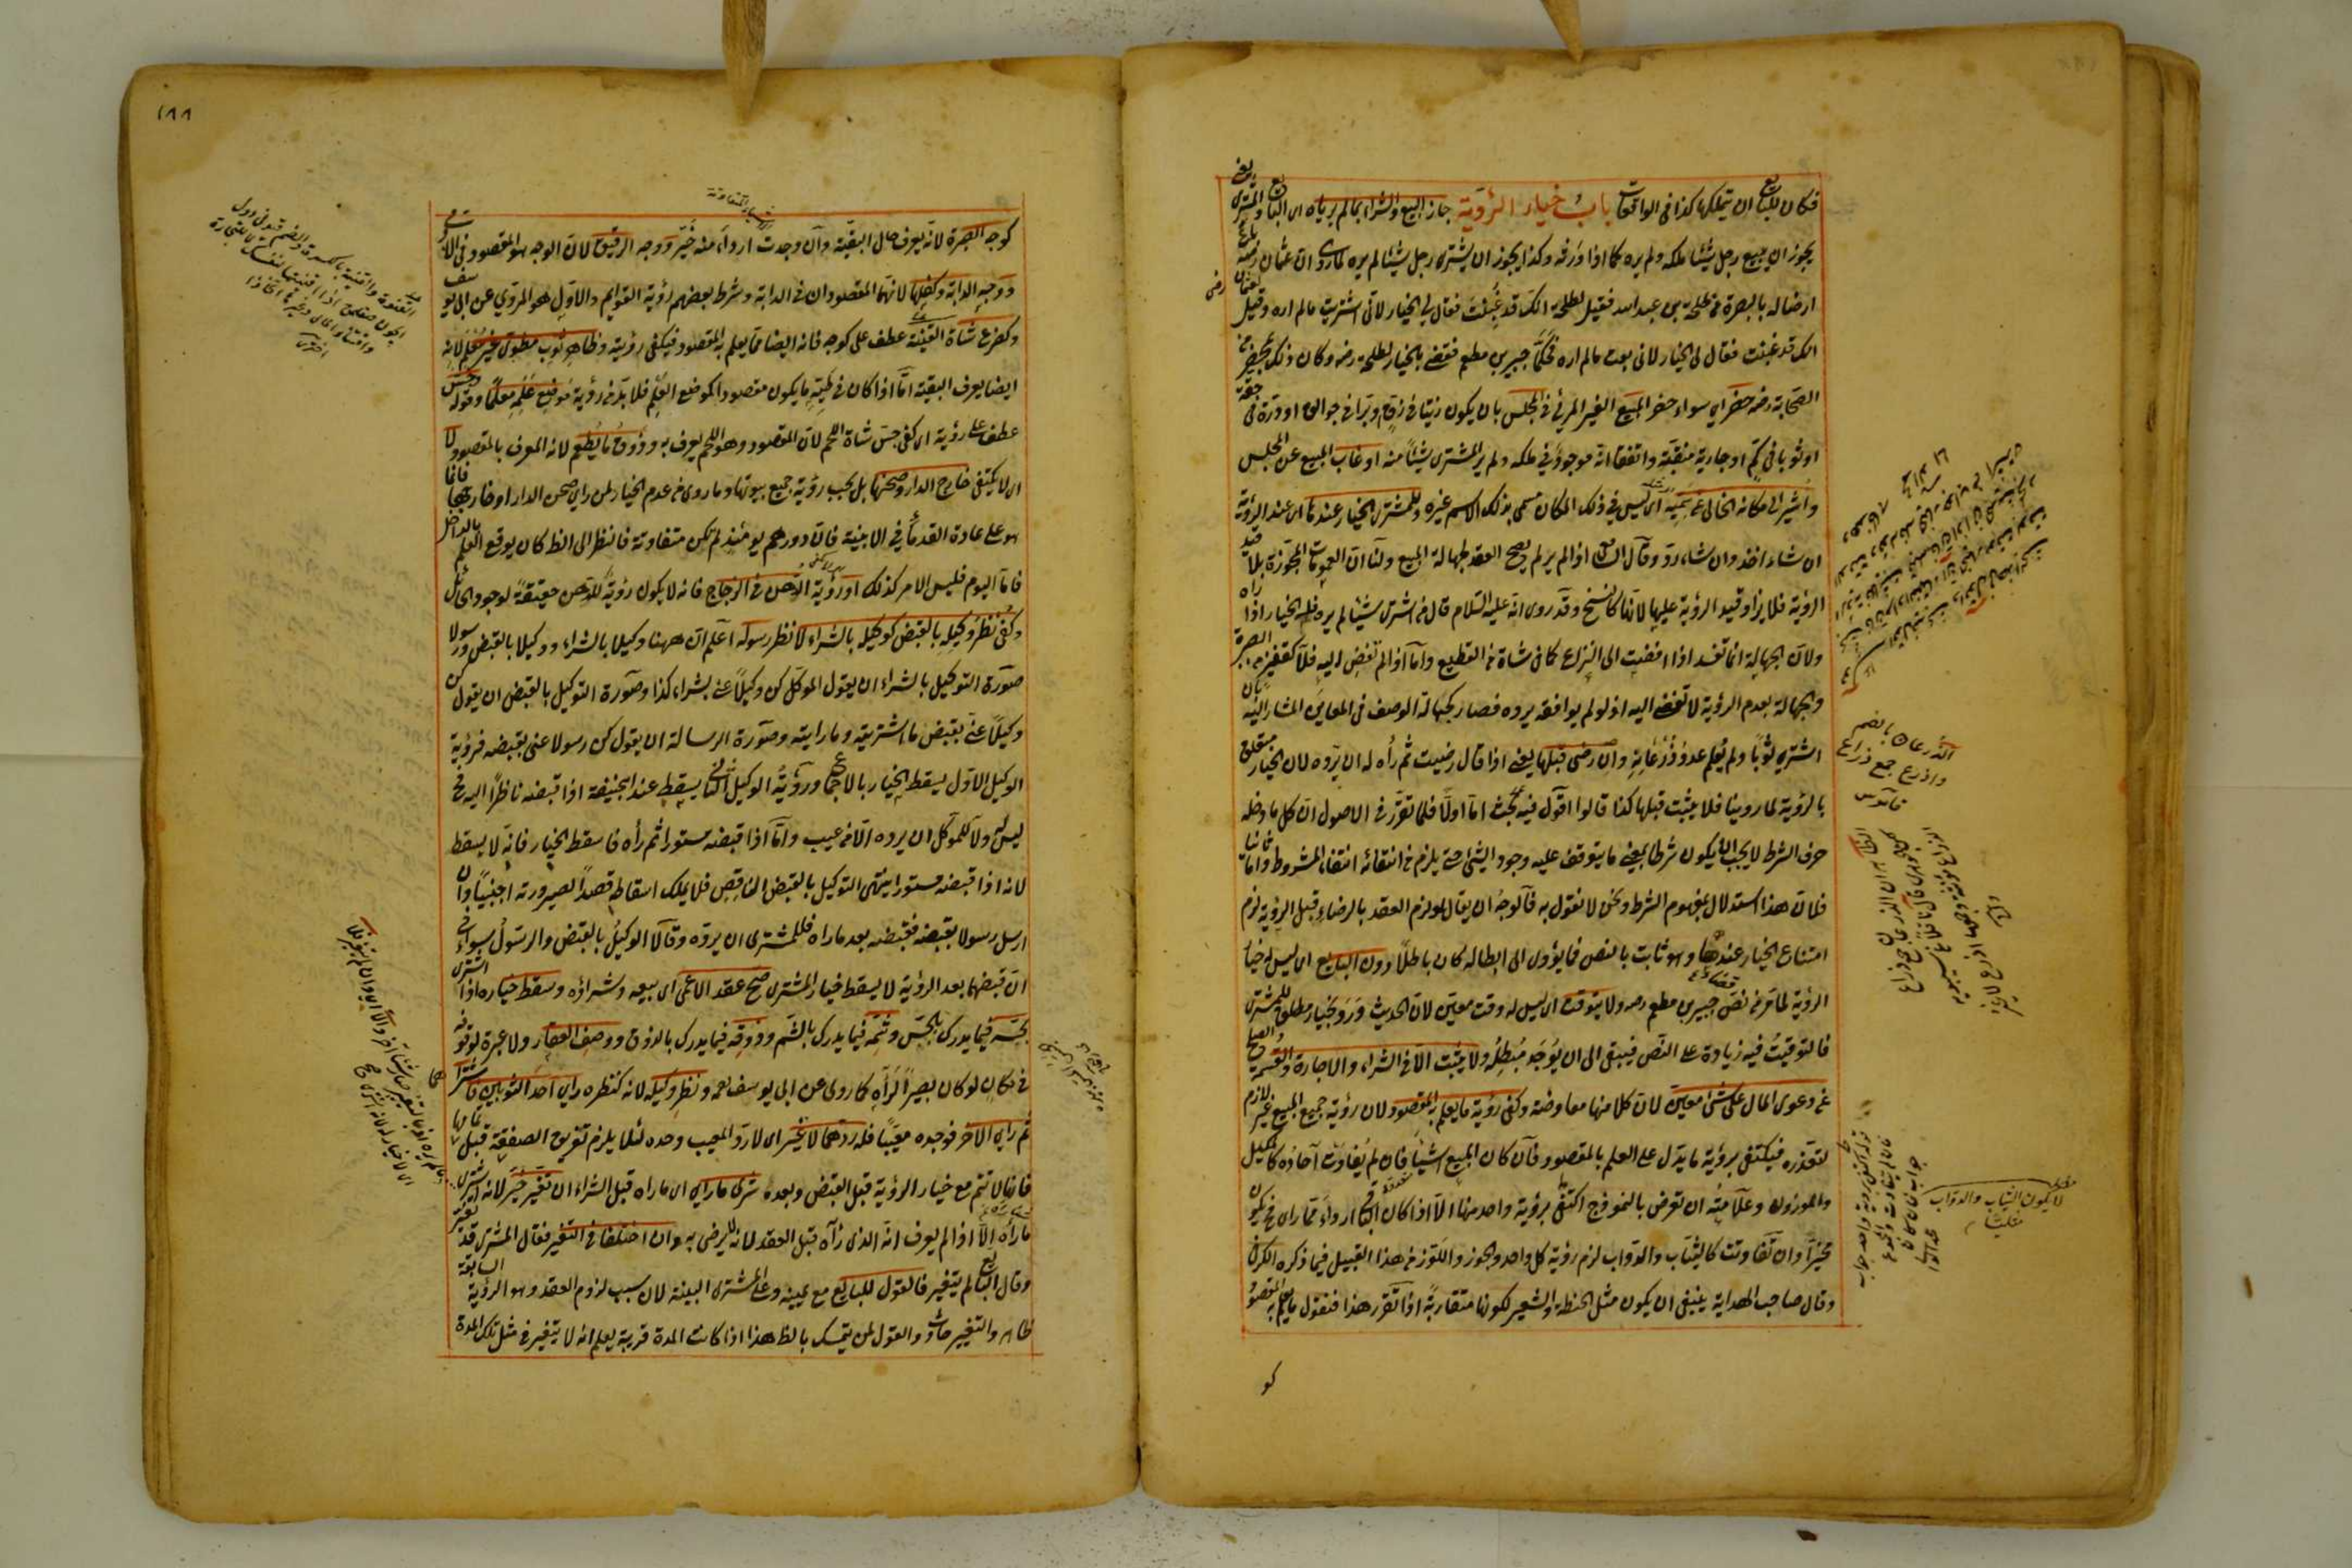 فكان للبايع ان يتملكها كذا فى الواقعات باب خيار الرؤية جاز البيع والشراء بمالم يرياه اى البايع والمشترى يعنى
يجوز ان يبيع رجل شيئا ملكه ولم يره كما اذا ورثه وكذا يجوز ان يشترى رجل شيئا لم يره لما روى ان عثمان رضه باع
ارضا له بالبصرة من طلحة بن عبد الله فقيل لطلحة انك قد غبنت فقال لى الخيار لانى اشتريت مالم اره وقيل لعثمان رضى
انك قد غبنت فقال لى الخيار لانى بعت مالم اره فحكما جبير بن مطعم فقضى بالخيار لطلحة رضه وكان ذلك بمحضر من
الصحابة رضه حضر اى سواء حضر المبيع الغير المرئى فى المجلس بان يكون زيتا فى زق وبرا فى جوالق او درة فى حقة
او ثوبا فى كم او جارية منقبة واتفقا انه موجود فى ملكه ولم ير المشترى شيئا منه او غاب المبيع عن المجلس
واشير الى مكانه الخالى عن سميه اى ليس فى ذلك المكان مسمى بذلك الاسم غيره وللمشترى الخيار عندها اى عند الرؤية
ان شاء اخذ وان شاء رد وقال الشافعى اذا لم ير لم يصح العقد لجهالة المبيع ولنا ان العمومات المجوزة بلا قيد
الرؤية فلا يزاد قيد الرؤية عليها لانها كالنسخ وقد روى انه عليه السلام قال من اشترى شيئا لم يره فله الخيار اذا راه
ولان الجهالة انما تفسد اذا افضت الى النزاع كما فى شاة من القطيع واما اذا لم تفض اليه فلا كقفيز من الصبرة
والجهالة بعدم الرؤية لا تفضى اليه اذ لو لم يوافقه يرده فصار كجهالة الوصف فى المعاين المشار اليه بان
اشترى ثوبا ولم يعلم عدد ذرعانه وان رضى قبلها يعنى اذا قال رضيت ثم رأه له ان يرده لان الخيار معلق
بالرؤية لما روينا فلا يثبت قبلها كذا قالوا اقول فيه بحث اما اولا فلما تقرر فى الاصول ان كل ما دخله
حرف الشرط لا يجب ان يكون شرطا بمعنى ما يتوقف عليه وجود الشئ حتى يلزم من انتفائه انتفاء المشروط واما ثانيا
فلان هذا استدلال بمفهوم الشرط ونحن لا نقول به فالوجه ان يقال لو لزم العقد بالرضاء قبل الرؤية لزم
امتناع الخيار عندها وهو ثابت بالنص فما يؤدى الى ابطاله كان باطلا دون البايع اى ليس له خيار
الرؤية لما مر من نص جبير بن مطعم رضه ولا يتوقت اى ليس له وقت معين لان الحديث ورد بخيار مطلق للمشترى
فالتوقيت فيه زيادة على النص فيبقى الى ان يوجد مبطله ولا يثبت الا فى الشراء والاجارة والقسمة والصلح
عن دعوى المال على شئ معين لان كلا منها معاوضة وكفى رؤية ما يعلم به المقصود لان رؤية جميع المبيع غير لازم
لتعذره فيكتفى برؤية ما يدل على العلم بالمقصود فان كان المبيع اشياء فان لم يتفاوت آحاده كالمكيل
والموزون وعلامته ان تعرض بالنموذج اكتفى برؤية واحد منها الا اذا كان الباقى اردأ مما راى فح يكون
مخيرا وان تفاوتت كالثياب والدواب لزم رؤية كل واحد والجوز واللوز من هذا القبيل فيما ذكره الكرخى
وقال صاحب الهداية ينبغى ان يكون مثل الحنطة والشعير لكونها متقاربة اذا تقرر هذا فنقول ما يعلم به المقصود
الذرعان بالضم
واذرع جمع ذراع
قاموس
لا يكون الثياب والدواب
١٨٨
كوجه الصبرة لانه يعرف حال البقية وان وجدت اردأ منه خير ووجه الرقيق لان الوجه هو المقصود فى الادمى
ووجه الدابة وكفلها لانهما المقصودان فى الدابة وشرط بعضهم رؤية القوايم والاول هو المروى عن ابى يوسف
وكضرع شاة القنية عطف على كوجه فانه ايضا مما يعلم به المقصود فيكفى رؤيته وظاهر ثوب مطوى غير معلم لانه
ايضا يعرف البقية اما اذا كان فى طيه ما يكون مقصودا كموضع العلم فلا بد من رؤية موضع علمه معلما وقوله وجس
عطف على رؤية اى كفى جس شاة اللحم لان المقصود وهو اللحم يعرف به وذوق ما يطعم لانه المعرف بالمقصود لا
اى لا يكتفى خارج الدار وصحنها بل يجب رؤية جميع بيوتها وما روى من عدم الخيار لمن راى صحن الدار او خارجها فانما
هو على عادة القدماء فى الابنية فان دورهم يومئذ لم تكن متفاوتة فالنظر الى الظ كان يوقع العلم بالداخل
فاما اليوم فليس الامر كذلك او رؤية الدهن فى الزجاج فانه لا يكون رؤية للدهن حقيقة لوجود الحائل
وكفى نظر وكيله بالقبض كوكيله بالشراء لا نظر رسوله اعلم ان ههنا وكيلا بالشراء ووكيلا بالقبض ورسولا
صورة التوكيل بالشراء ان يقول الموكل كن وكيلا عنى بشراء كذا وصورة التوكيل بالقبض ان يقول كن
وكيلا عنى بقبض ما اشتريته وما رايته وصورة الرسالة ان يقول كن رسولا عنى بقبضه فرؤية
الوكيل الاول يسقط الخيار بالاجماع ورؤية الوكيل الثانى يسقط عند ابى حنيفة اذا قبضه ناظرا اليه فح
ليس له ولا للموكل ان يرده الا من عيب واما اذا قبضه مستورا ثم رأه فاسقط الخيار فانه لا يسقط
لانه اذا قبضه مستورا ينتهى التوكيل بالقبض الناقص فلا يملك اسقاطه قصدا لصيرورته اجنبيا وان
ارسل رسولا بقبضه فقبضه بعد ما راه فللمشترى ان يرده وقالا الوكيل بالقبض والرسول سواء فى
ان قبضهما بعد الرؤية لا يسقط خيار المشترى صح عقد الاعمى اى بيعه وشراؤه وسقط خياره اذا اشترى
بجسه فيما يدرك بالجس وشمه فيما يدرك بالشم وذوقه فيما يدرك بالذوق ووصف العقار ولا عبرة لوقوفه
فى مكان لو كان بصيرا لرآه كما روى عن ابى يوسف رحمه ونظر وكيله لانه كنظره راى احد الثوبين فاشتراهما
ثم راى الآخر فوجده معيبا فله ردهما لا غير اى لا رد المعيب وحده لئلا يلزم تفريق الصفقة قبل تمامها
فانها لا تتم مع خيار الرؤية قبل القبض وبعده شرى ما راى اى ما راه قبل الشراء ان تغير خير لانه اشترى
ما راه الا اذا لم يعرف انه الذى رآه قبل العقد لانه لم يرض به وان اختلفا فى التغير فقال المشترى قد تغير
وقال البايع لم يتغير فالقول للبايع مع يمينه وعلى المشترى البينة لان سبب لزوم العقد وهو الرؤية السابقة
ظاهر والتغير حادث والقول لمن يتمسك بالظ هذا اذا كانت المدة قريبة يعلم انه لا يتغير فى مثل تلك المدة